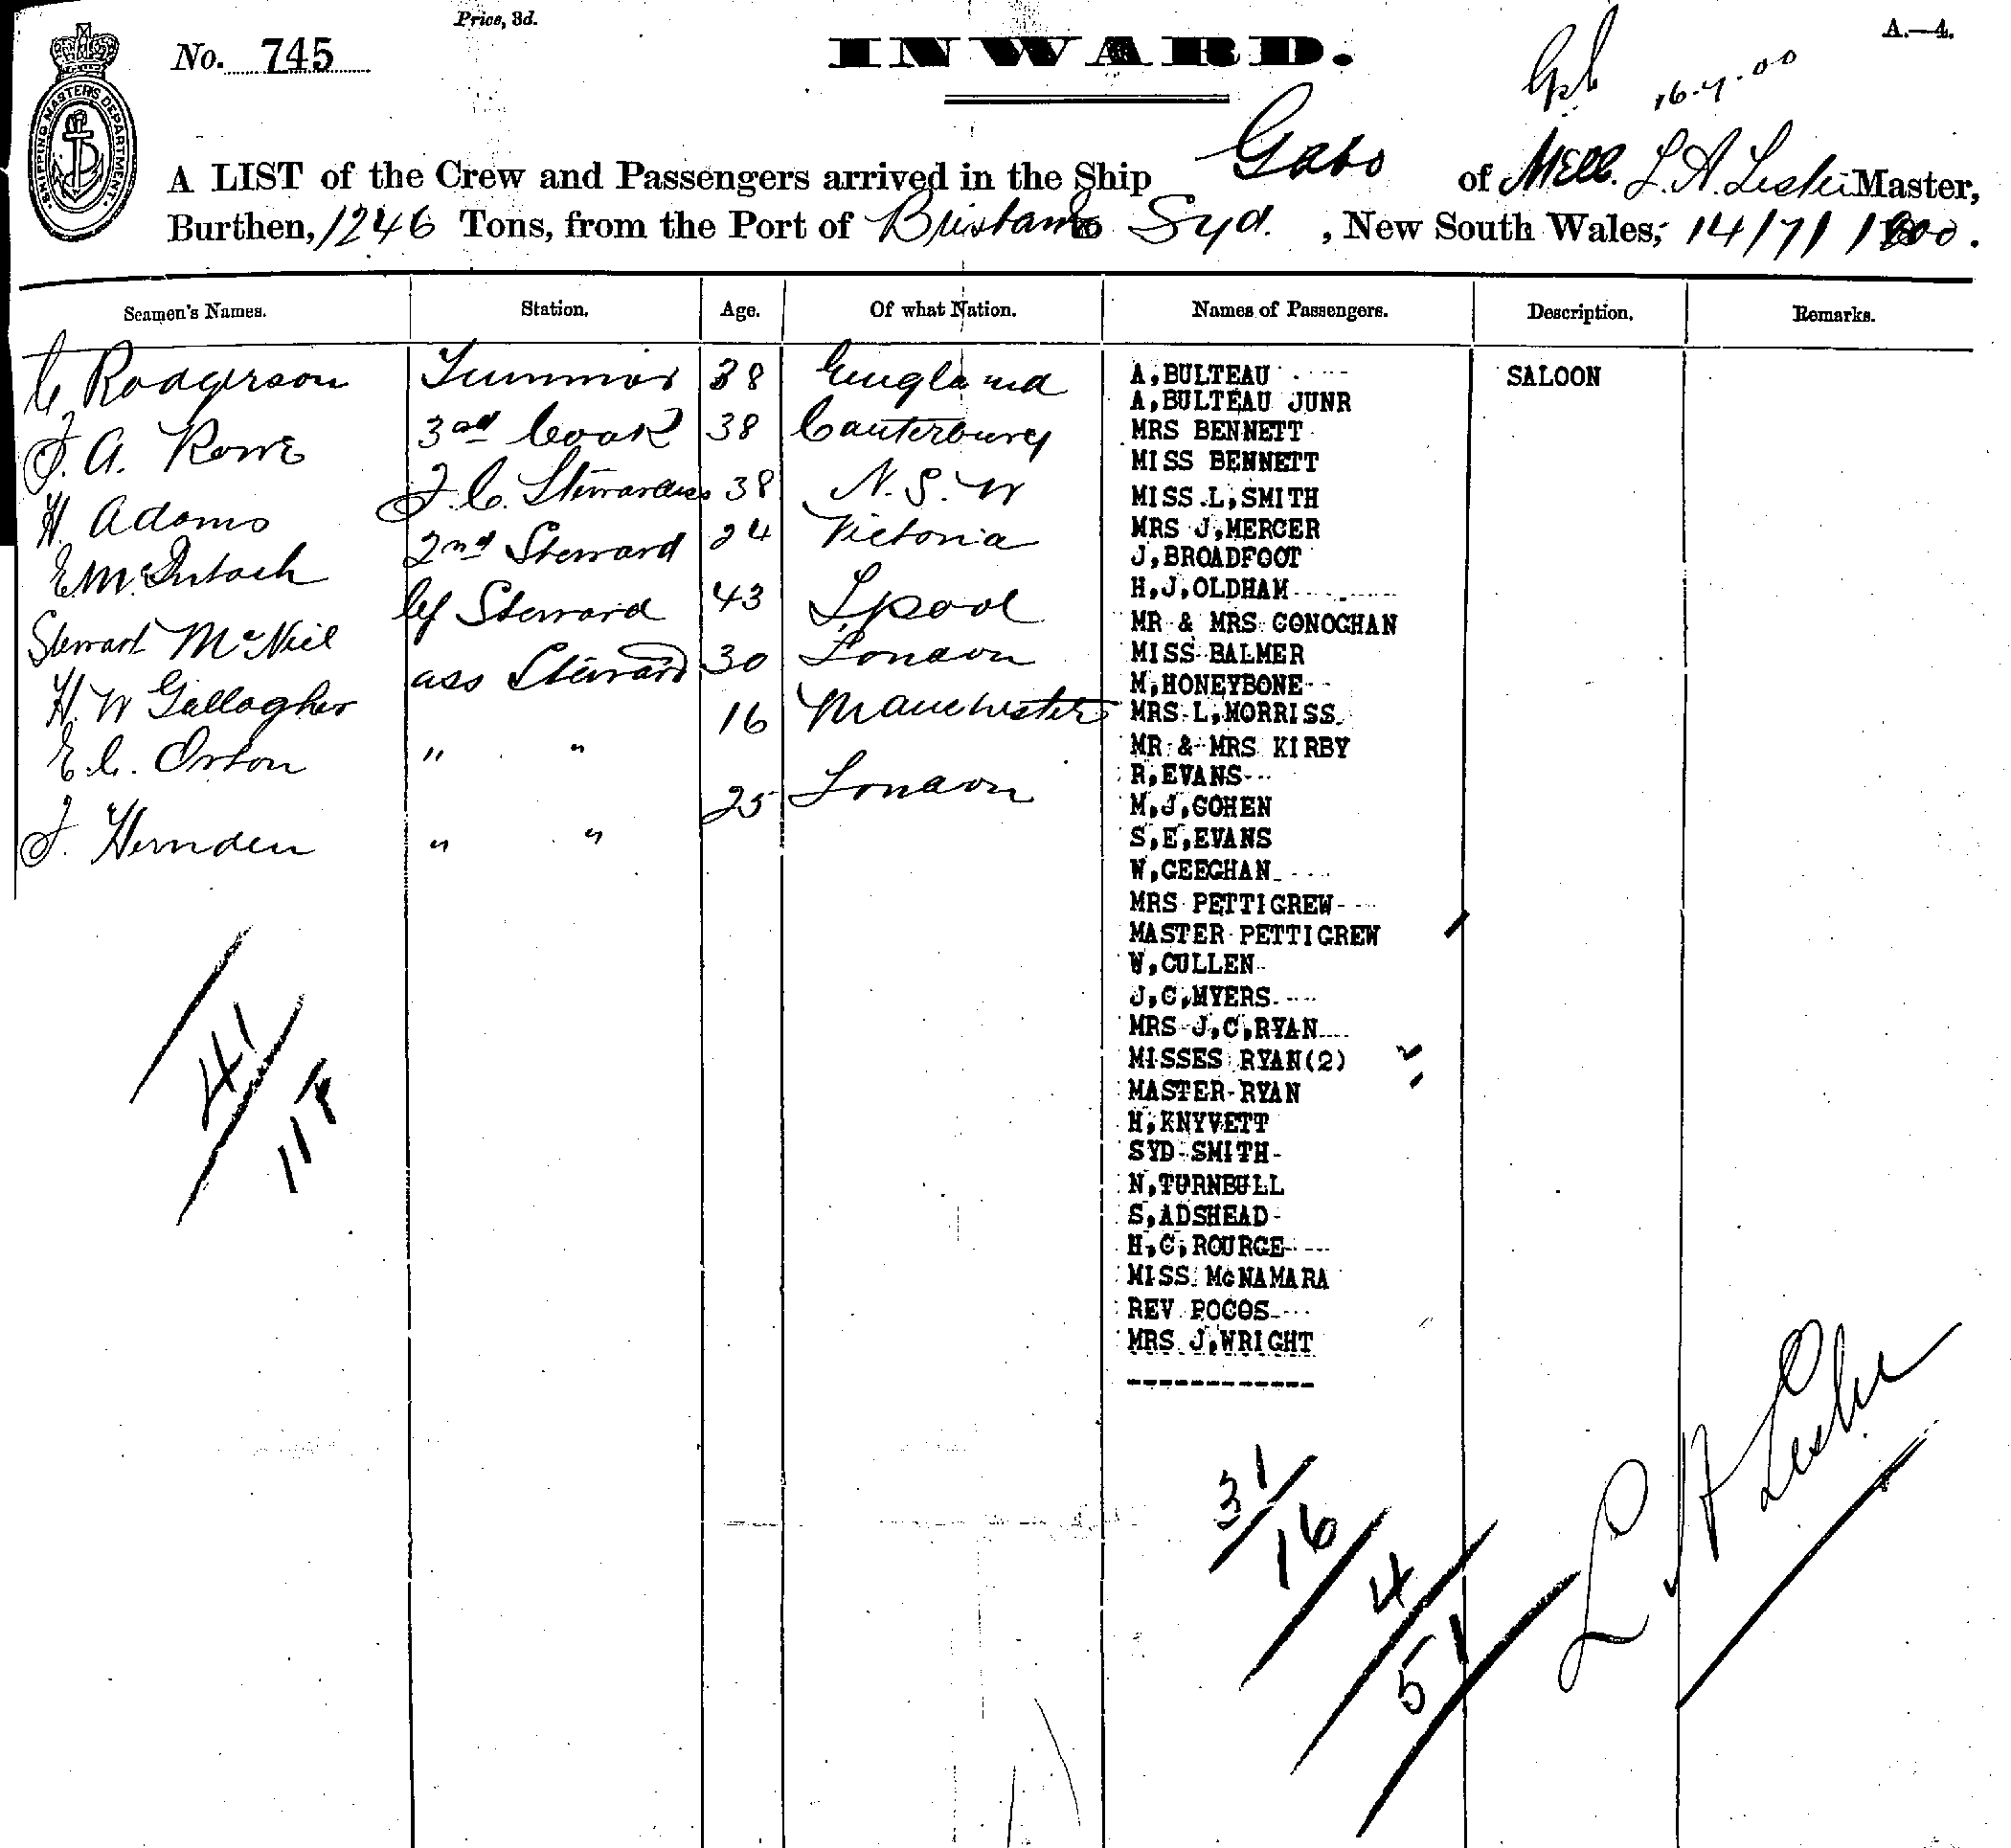 Price, 3d.
A.—4.
No. 745
INWARD.
16.7.00
SHIPPING MASTER'S DEPARTMENT.
A LIST of the Crew and Passengers arrived in the Ship Gabo of Melb. L. A. Leslie Master,
Burthen, 1246 Tons, from the Port of Brisbane to Syd. , New South Wales, 14/7/1900.
Seamen's Names. Station. Age. Of what Nation. Names of Passengers. Description. Remarks.
C Rodgerson Trimmer 38 England
J. A. Rowe 3rd Cook 38 Canterbury
H. Adams F. C. Stewardess 38 N. S. W
E McIntosh 2nd Steward 24 Victoria
Stewart McNeil Cf Steward 43 Lpool
H. W Gallagher ass Steward 30 London
E. C. Orton " " 16 Manchester
J. Hernden " " 25 London
A,BULTEAU SALOON
A,BULTEAU JUNR
MRS BENNETT
MISS BENNETT
MISS L,SMITH
MRS J,MERCER
J,BROADFOOT
H,J,OLDHAM
MR & MRS CONOGHAN
MISS BALMER
M,HONEYBONE
MRS L,MORRISS
MR & MRS KIRBY
R,EVANS
M,J,COHEN
S,E,EVANS
W,GEEGHAN
MRS PETTIGREW
MASTER PETTIGREW
W,CULLEN
J,C,MYERS
MRS J,C,RYAN
MISSES RYAN(2)
MASTER RYAN
H,KNYVETT
SYD SMITH
N,TURNBULL
S,ADSHEAD
H,C,ROURGE
MISS McNAMARA
REV POCOS
MRS J,WRIGHT
41
31
16
4
51
L A Leslie